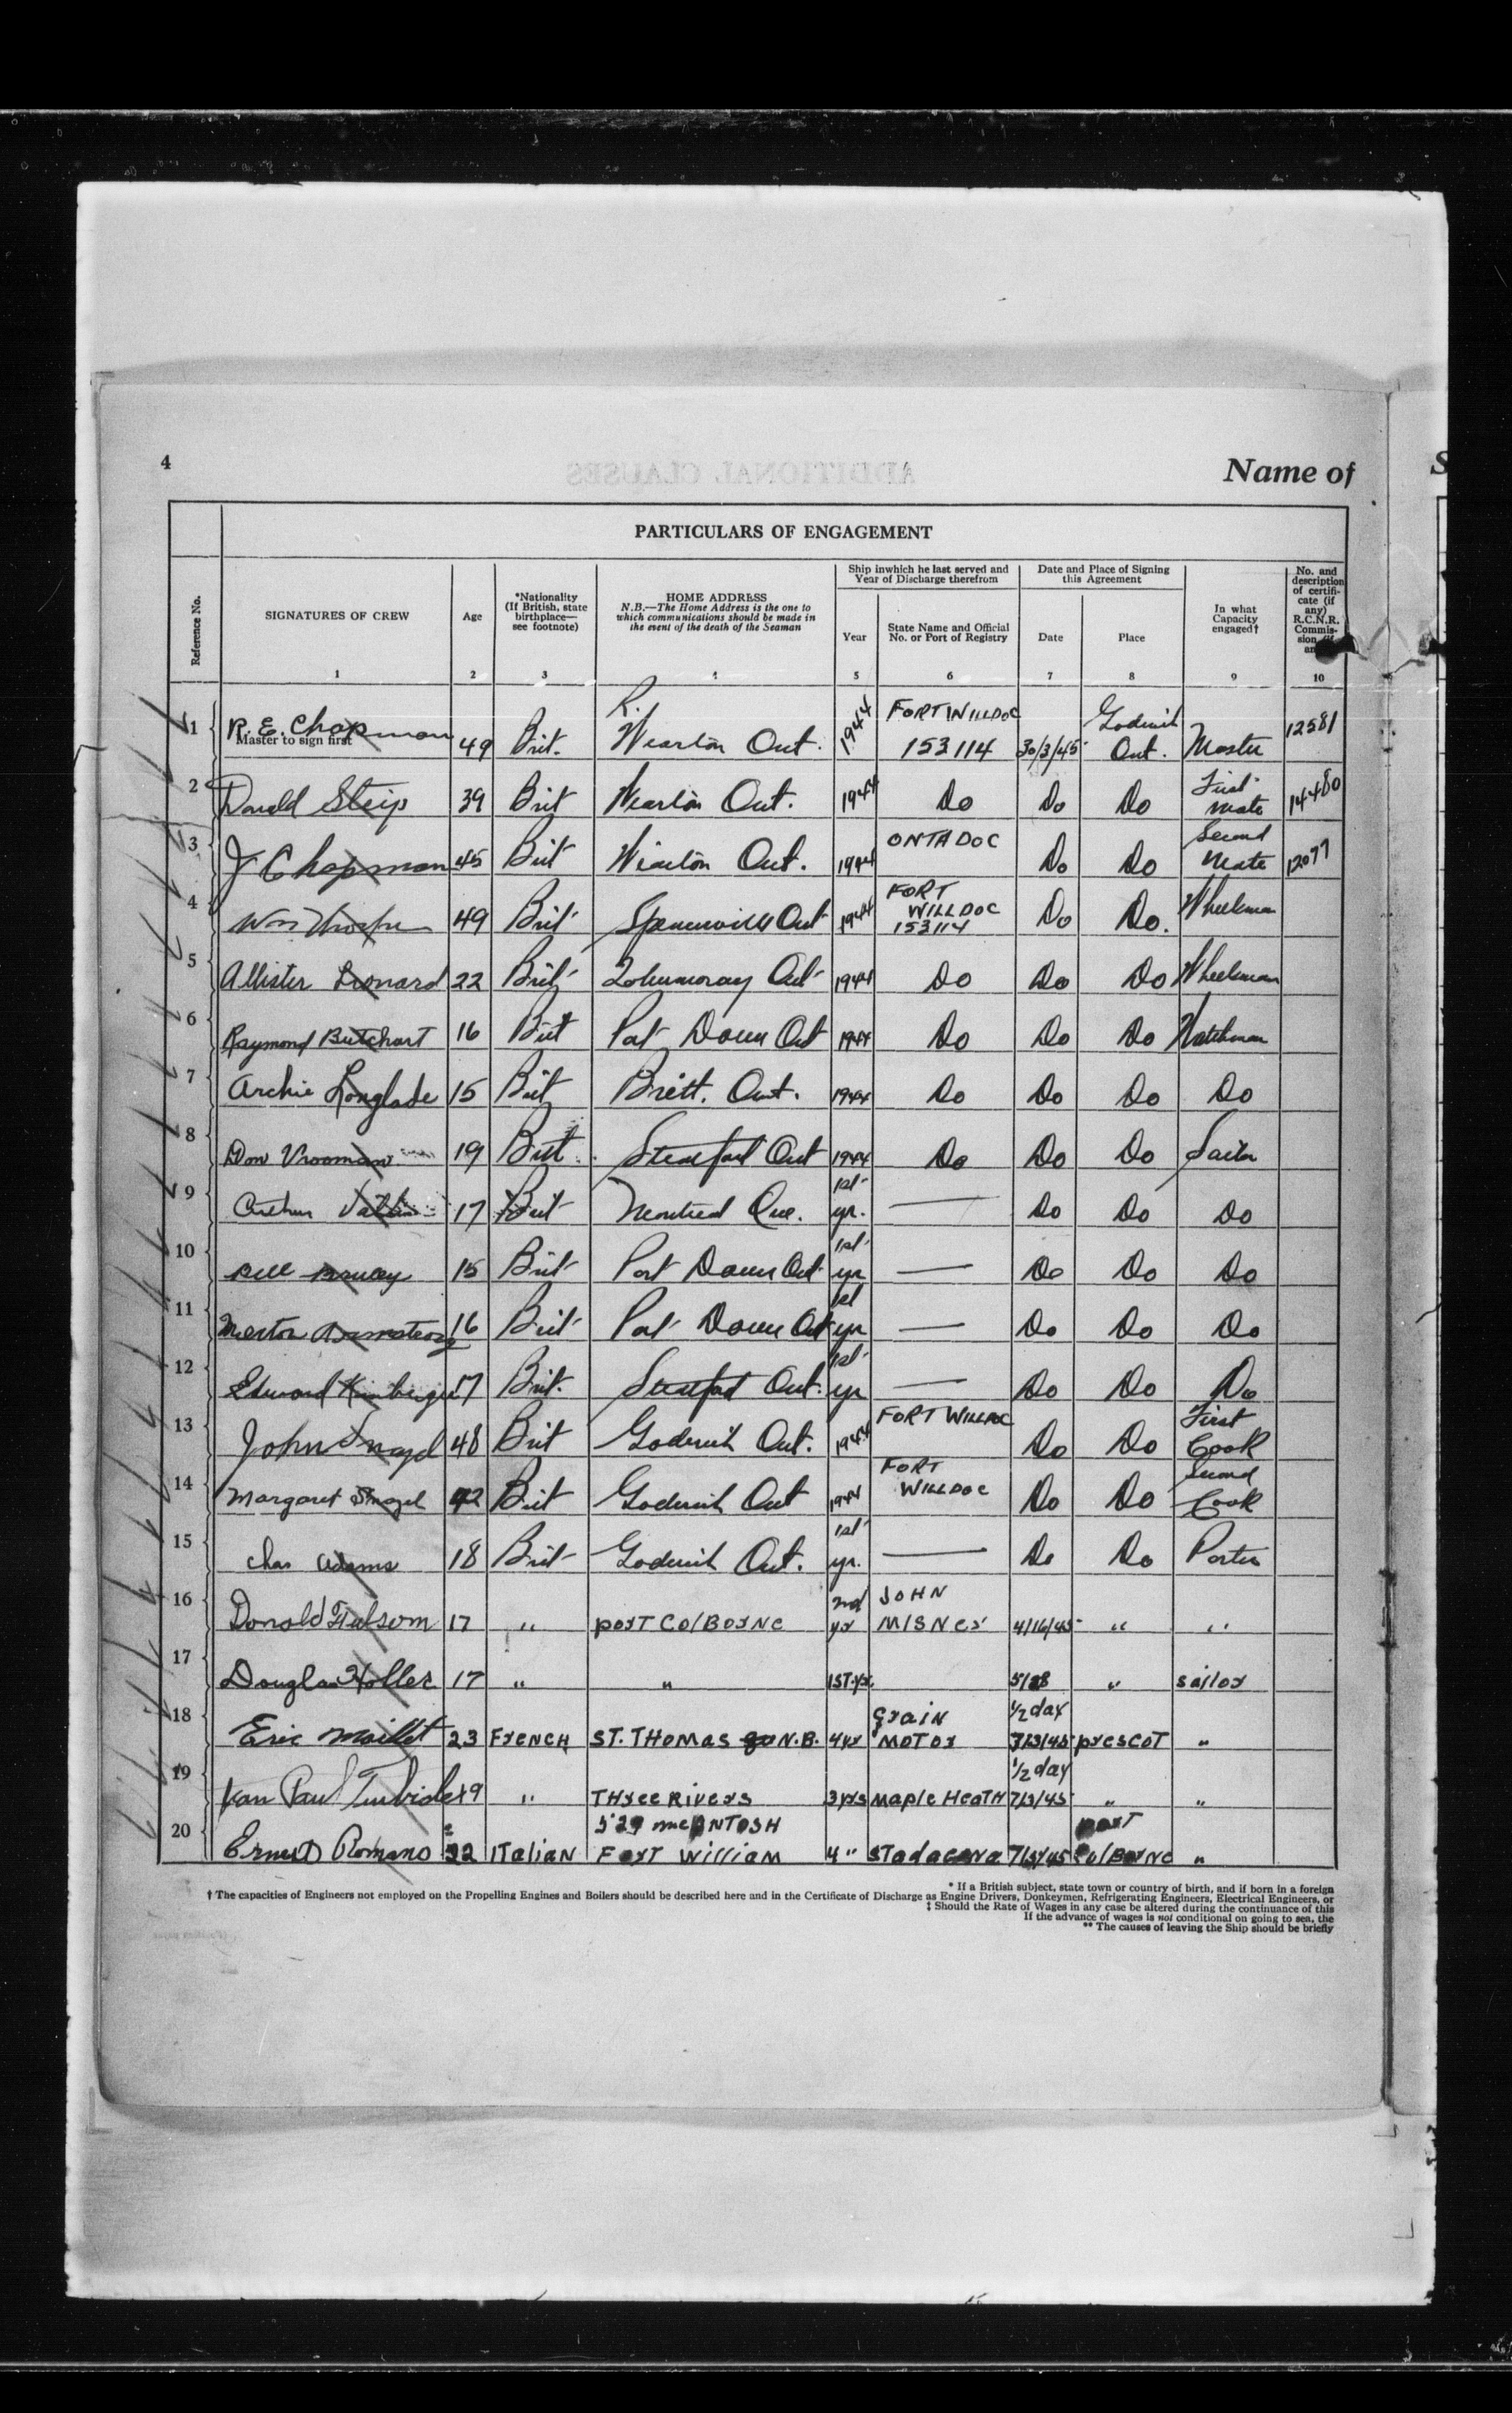 4
Name of
PARTICULARS OF ENGAGEMENT
Reference No.
SIGNATURES OF CREW
Age
*Nationality
(If British, state
birthplace—
see footnote)
HOME ADDRESS
N.B.—The Home Address is the one to
which communications should be made in
the event of the death of the Seaman
Ship inwhich he last served and
Year of Discharge therefrom
Year
State Name and Official
No. or Port of Registry
Date and Place of Signing
this Agreement
Date
Place
In what
Capacity
engaged†
No. and
description
of certifi-
cate (if
any)
R.C.N.R.
Commis-
sion
1 2 3 5 6 7 8 9 10
1 R. E. Chapman 49 Brit. Wiarton Ont. 1944 FORT WILLDOC 153114 30/3/45 Goderich Ont. Master 12581
Master to sign first
2 Donald Steip 39 Brit Wiarton Ont. 1944 Do Do Do First Mate 14480
3 J Chapman 45 Brit Wiarton Ont. 1944 ONTADOC Do Do Second Mate 12077
4 Wm 49 Brit Ont 1944 FORT WILLDOC 153114 Do Do. Wheelsman
5 Allister Leonard 22 Brit Tobermoray Ont 1944 Do Do Do Wheelsman
6 Raymond Butchart 16 Brit Port Dover Ont 1944 Do Do Do Watchman
7 Archie Longlade 15 Brit Britt. Ont. 1944 Do Do Do Do
8 Don Vrooman 19 Brit. Stratford Ont 1944 Do Do Do Sailor
9 Arthur 17 Brit Montreal Que. 1st yr. — Do Do Do
10 Bill 15 Brit Port Dover Ont 1st yr — Do Do Do
11 Merton Armstrong 16 Brit Port Dover Ont 1st yr — Do Do Do
12 Edward 17 Brit. Stratford Ont. 1st yr — Do Do Do
13 John 48 Brit Goderich Ont. 1944 FORT WILLDOC Do Do First Cook
14 Margaret 42 Brit Goderich Ont 1944 FORT WILLDOC Do Do Second Cook
15 Chas Adams 18 Brit Goderich Ont. 1st yr. — Do Do Porter
16 Donald Fulsom 17 " port Colborne 2nd yr JOHN MISNer 4/16/45 " "
17 Douglas Holler 17 " " 1ST yr. 5/28 " sailor
18 Eric Maillet 23 FrencH ST. THOMAS N.B. 4 yr grain MOTOr ½ day 7/3/45 prescoT "
19 19 " THree Rivers 3 yrs Maple HeatH ½ day 7/3/45 " "
20 Ernest Romano 22 ITaliAN 529 mcINTOSH ForT William 4 " STadacona 7/3/45 port Colborne "
* If a British subject, state town or country of birth, and if born in a foreign
† The capacities of Engineers not employed on the Propelling Engines and Boilers should be described here and in the Certificate of Discharge as Engine Drivers, Donkeymen, Refrigerating Engineers, Electrical Engineers, or
‡ Should the Rate of Wages in any case be altered during the continuance of this
If the advance of wages is not conditional on going to sea, the
** The causes of leaving the Ship should be briefly